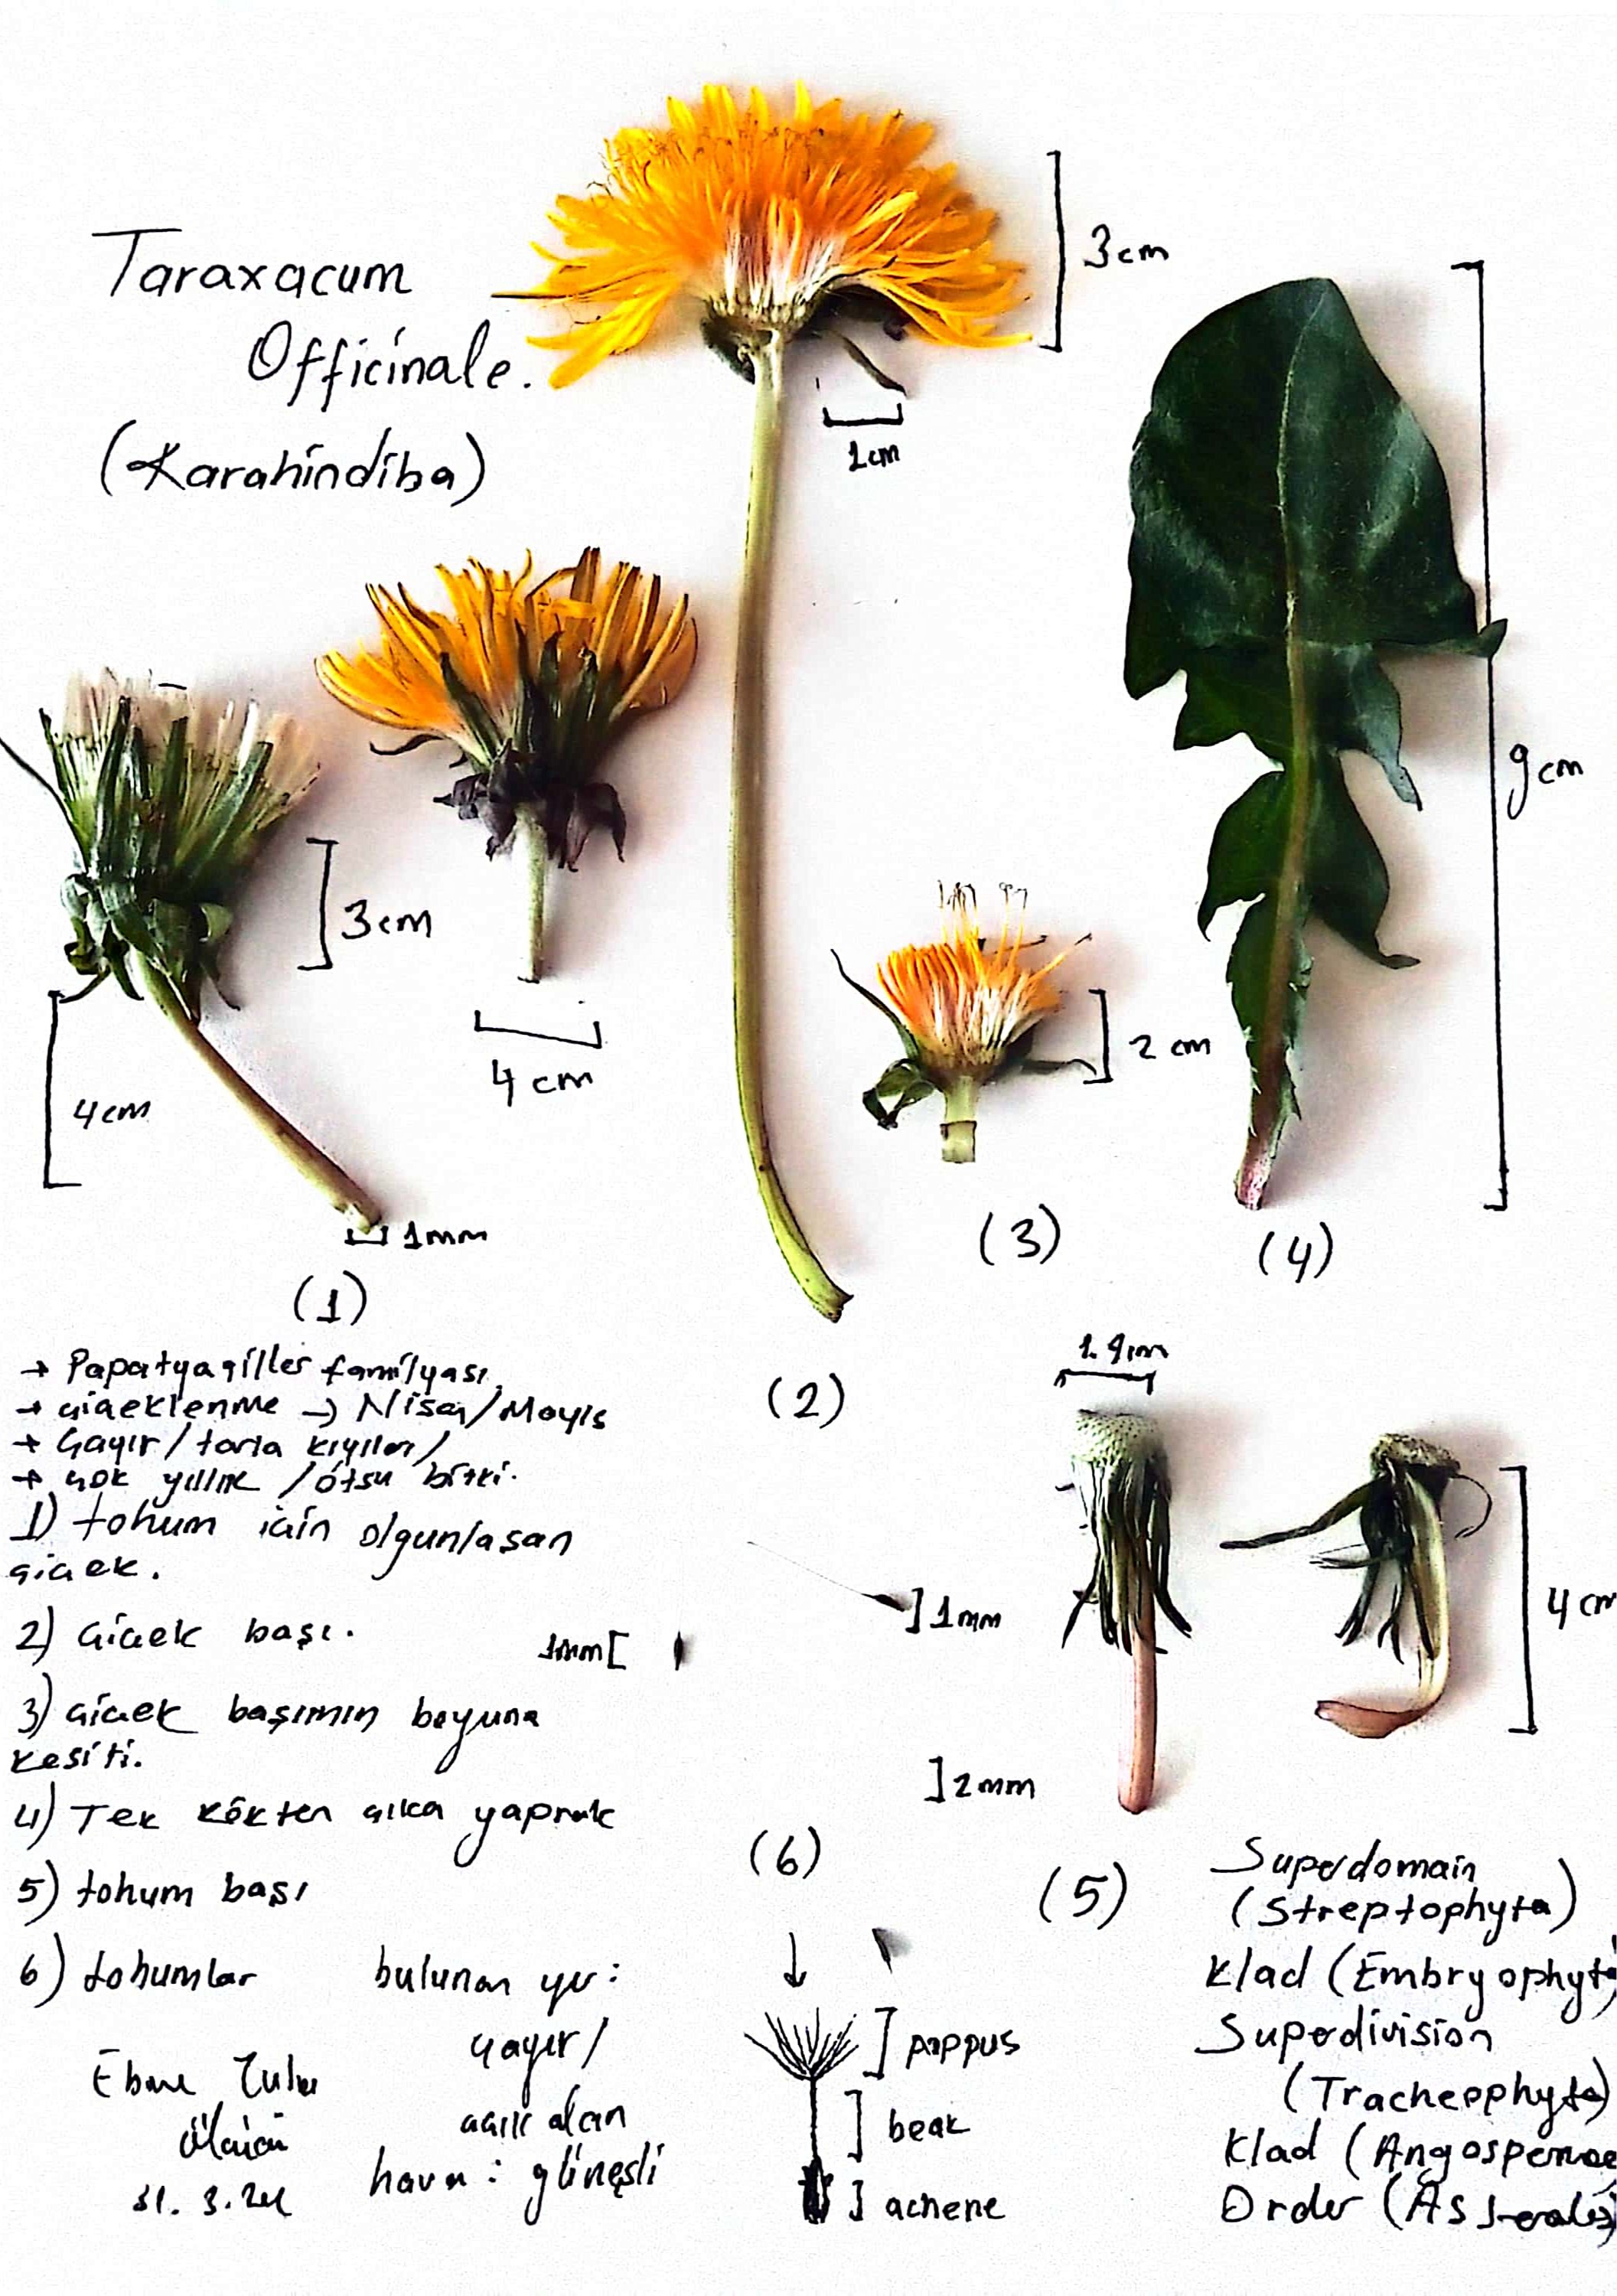 Taraxacum
Officinale.
(Karahindiba)
3cm
1cm
9cm
3cm
4cm
4cm
1mm
2 cm
(1)
(2)
(3)
(4)
→ Papatyagiller familyası
→ çiçeklenme → Nisan/Mayıs
→ Çayır/tarla kıyıları/
→ çok yıllık / otsu bitki.
1) tohum için olgunlaşan
çiçek.
2) Çiçek başı.
3) Çiçek başının boyuna
kesiti.
4) Tek kökten çıka yaprak
5) tohum başı
6) tohumlar
bulunan yer:
çayır/
açık alan
hava: güneşli
31. 3. 24
1mm
1mm
2mm
(6)
4 cm
(5)
pappus
beak
achene
Superdomain
(Streptophyta)
Klad (Embryophyta
Superdivision
(Tracheophyta)
Klad (Angospermae
Order (Asterales)